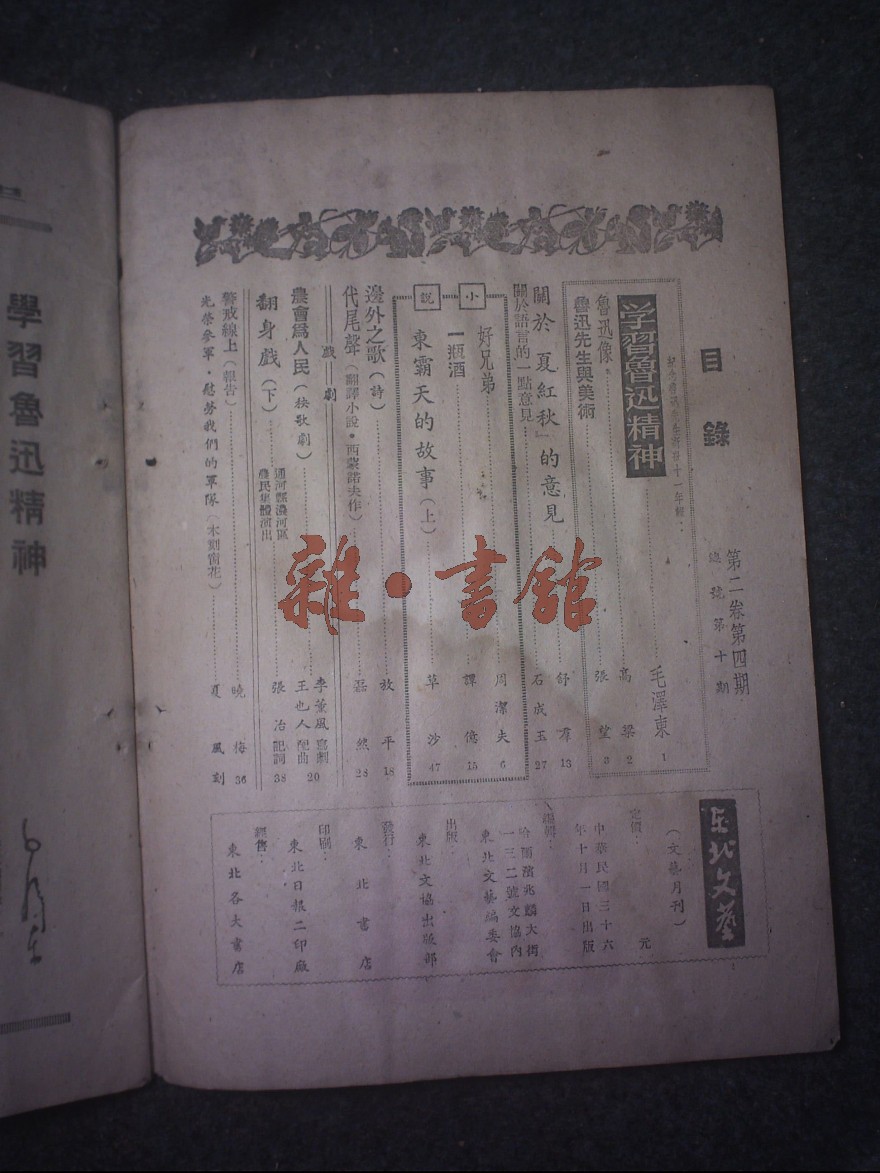 目錄
第二卷第四期
總號第十期
紀念魯迅先生逝世十一年祭
学習魯迅精神 毛澤東 1
魯迅像 高梁 2
魯迅先生與美術 張望 3
關於「夏紅秋」的意見 舒羣 13
關於語言的一點意見 石成玉 27
小說
好兄弟 周潔夫 6
一瓶酒 譚億 15
東霸天的故事(上) 草沙 47
邊外之歌(詩) 放平 18
代尾聲(翻譯小說·西蒙諾夫作) 磊然 28
戲劇
農會爲人民(秧歌劇) 李薰風寫劇 王也人配曲 20
翻身戲(下) 通河縣濃河區農民集體演出 張冶記詞 38
警戒線上(報告) 曉梅 36
光榮參軍·慰勞我們的軍隊(木刻窗花) 夏風刻
东北文藝
(文藝月刊)
定價: 元
中華民國三十六
年十月一日出版
編輯:
哈爾濱兆麟大街
一三二號文協內
東北文藝編委會
出版:
東北文協出版部
發行:
東北書店
印刷:
東北日報二印廠
經售:
東北各大書店
學習魯迅精神
毛澤東
雜·書館